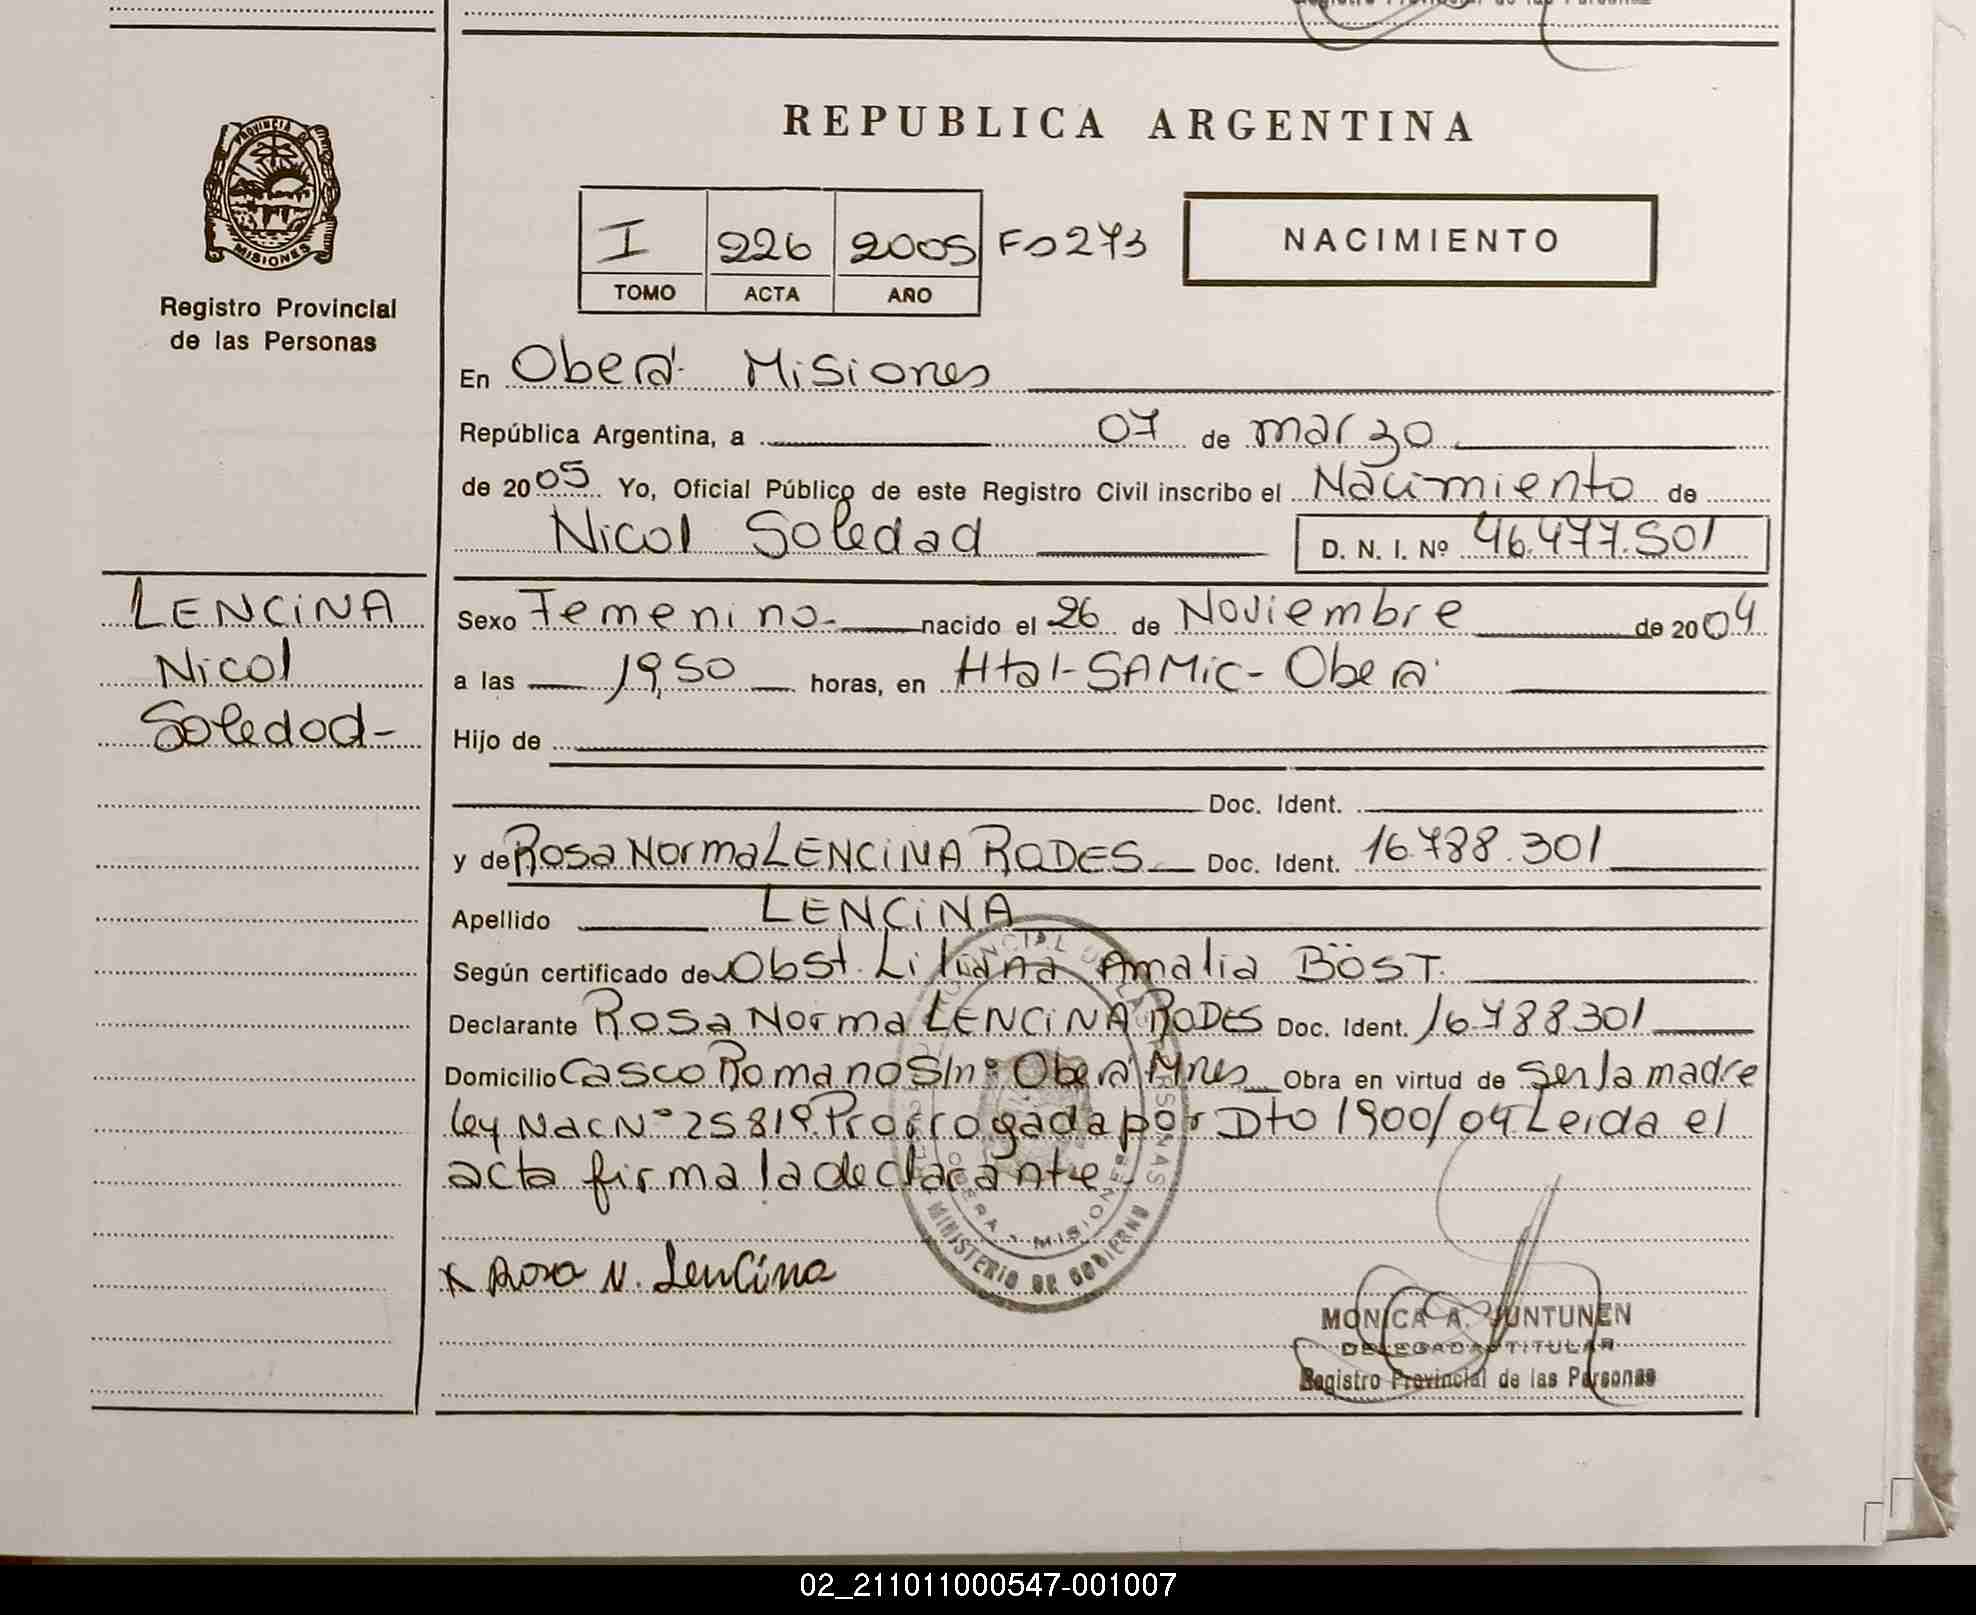 Registro Provincial de las Personas
PROVINCIA DE
MISIONES
Registro Provincial
de las Personas
REPUBLICA ARGENTINA
I 226 2005 Fo 273
TOMO ACTA AÑO
NACIMIENTO
En Oberá Misiones
República Argentina, a 07 de marzo
de 2005 Yo, Oficial Público de este Registro Civil inscribo el Nacimiento de
Nicol Soledad D. N. I. Nº 46.477.501
LENCINA
Nicol
Soledad-
Sexo Femenino- nacido el 26 de Noviembre de 2004
a las 19,50 horas, en Htal-SAMIC- Oberá
Hijo de
Doc. Ident.
y de Rosa Norma LENCINA RODES Doc. Ident. 16.788.301
Apellido LENCINA
Según certificado de Obst. Liliana Amalia BÖST.
Declarante Rosa Norma LENCINA RODES Doc. Ident. 16.788301
Domicilio Casco Romano S/nº Oberá Mnes Obra en virtud de Ser la madre
ley Nac Nº 25819 Prorrogada por Dto 1900/04 Leida el
acta firma la declarante.
OBERA - MISIONES
MINISTERIO DE GOBIERNO
x Rosa N. Lencina
MONICA A. JUNTUNEN
DELEGADA TITULAR
Registro Provincial de las Personas
02_211011000547-001007